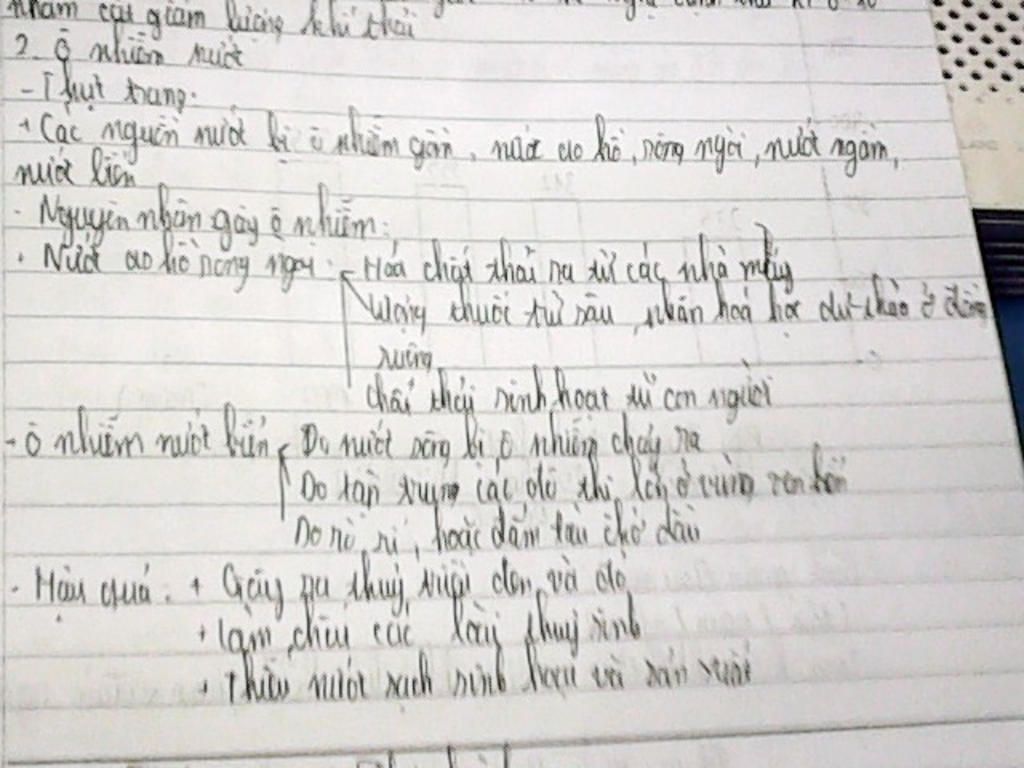 nhằm cắt giảm lượng khí thải
2. Ô nhiễm nước
- Thực trạng.
+ Các nguồn nước bị ô nhiễm gồm, nước ao hồ, sông ngòi, nước ngầm,
nước biển
- Nguyên nhân gây ô nhiễm:
+ Nước ao hồ sông ngòi: Hóa chất thải ra từ các nhà máy
Lượng thuốc trừ sâu, phân hoá học dư thừa ở đồng
ruộng
chất thải sinh hoạt từ con người
- Ô nhiễm nước biển Do nước sông bị ô nhiễm chảy ra
Do tập trung các đô thị lớn ở vùng ven biển
Do rò rỉ, hoặc đắm tàu chở dầu
- Hậu quả: + Gây ra thuỷ triều đen và đỏ
+ Làm chết các loài thuỷ sinh
+ Thiếu nước sạch sinh hoạt và sản xuất